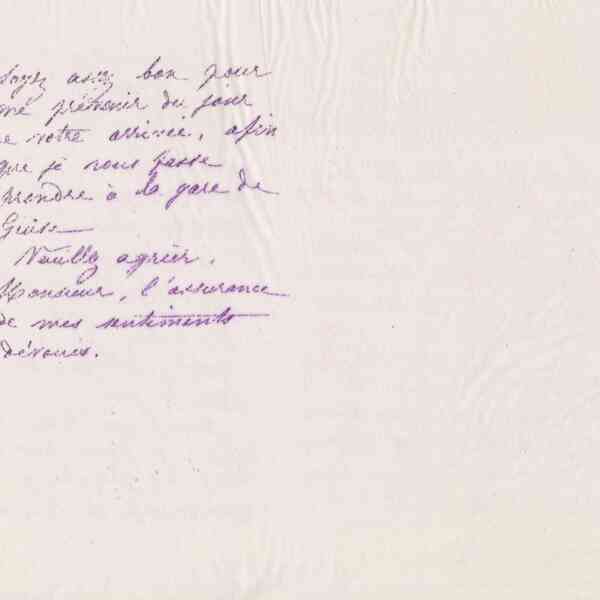 Soyez assez bon pour
me prévenir du jour
de votre arrivée, afin
que je vous fasse
prendre à la gare de
Guise
Veuillez agréer,
Monsieur, l'assurance
de mes sentiments
dévoués.